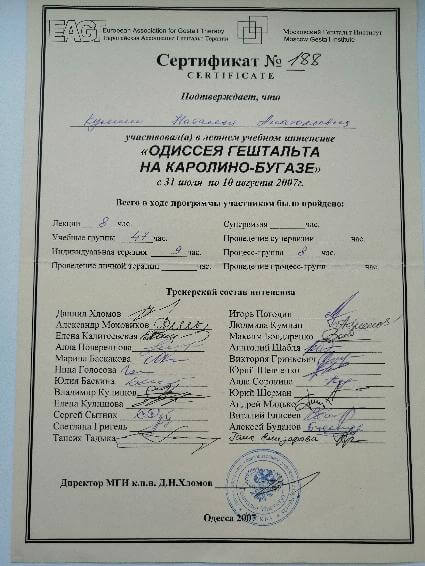 EAGT European Association for Gestalt Therapy
Европейская Ассоциация Гештальт Терапии
Московский Гештальт Институт
Moscow Gestalt Institute
Сертификат № 188
CERTIFICATE
Подтверждает, что
Наталья Анатольевна
участвовал(а) в летнем учебном интенсиве
«ОДИССЕЯ ГЕШТАЛЬТА
НА КАРОЛИНО-БУГАЗЕ»
с 31 июля по 10 августа 2007г.
Всего в ходе программы участником было пройдено:
Лекции 8 час. Супервизия час.
Учебные группы 47 час. Проведение супервизии час.
Индивидуальная терапия 9 час. Процесс-группа 8 час.
Проведение личной терапии час. Проведение процесс-групп час.
Тренерский состав интенсива
Даниил Хломов Игорь Погодин
Александр Моховиков Людмила Куман
Елена Калитеевская Максим Бондаренко
Алла Повереннова Анатолий Шабля
Марина Баскакова Виктория Гриневич
Нина Голосова Юрий Шевченко
Юлия Баскина Аида Сорокина
Владимир Куликов Юрий Шорман
Елена Кулишова Андрей Мацько
Сергей Сытник Виталий Елисеев
Светлана Григель Алексей Буданов
Таисия Тадыка
Директор МГИ к.п.н. Д.Н.Хломов
Одесса 2007